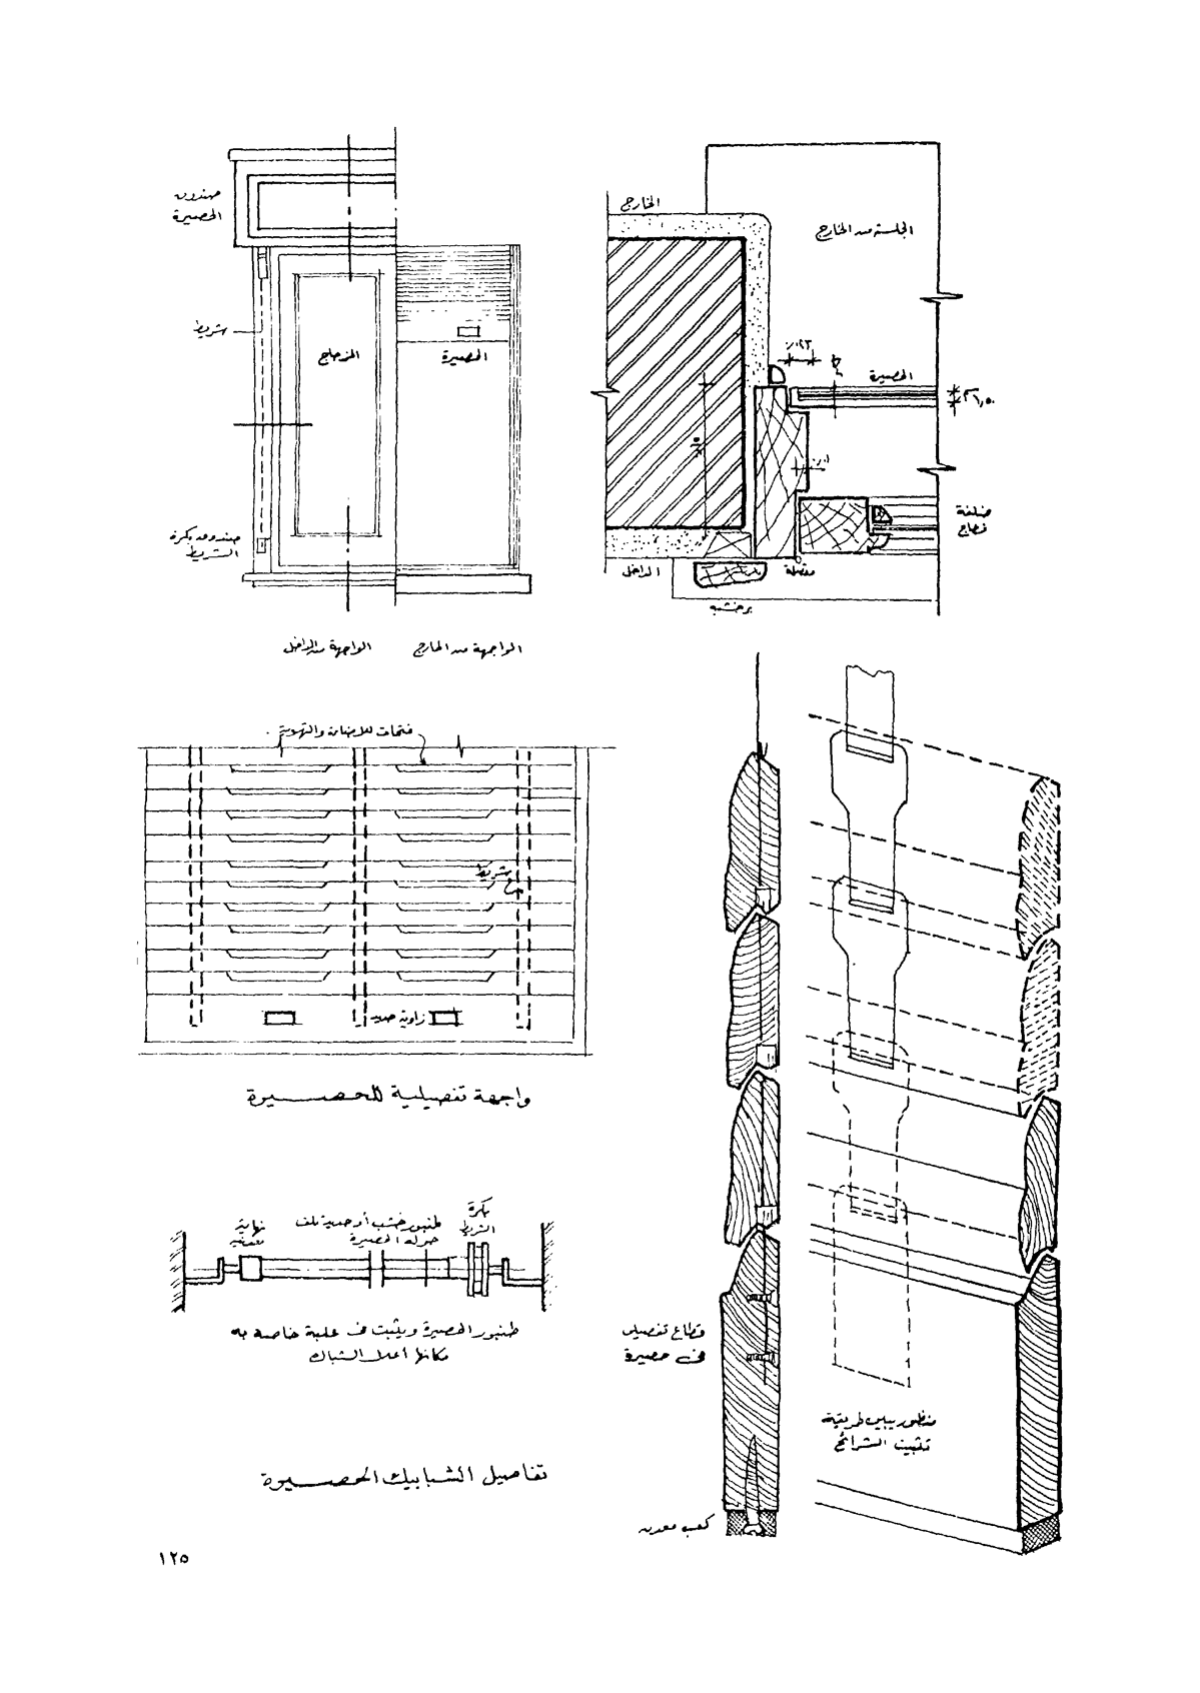 صندوق
الحصيرة
شريط
الزجاج
الحصيرة
صندوق بكرة
الشريط
الواجهة من الداخل
الواجهة من الخارج
الخارج
الجلسة من الخارج
الحصيرة
ضلفة
زجاج
مفصلة
الداخل
بر خشب
فتحات للإضاءة والتهوية
شريط
زاوية حديد
واجهة تفصيلية للحصيرة
بكرة
الشريط
طنبور خشب أو حديد تلف
حوله الحصيرة
نهاية
معدنية
طنبور الحصيرة ويثبت فى علبة خاصة به
مكانها أعلى الشباك
قطاع تفصيلى
فى حصيرة
منظور يبين طريقة
تثبيت الشرائح
تفاصيل الشبابيك الحصيرة
كعب معدن
١٢٥